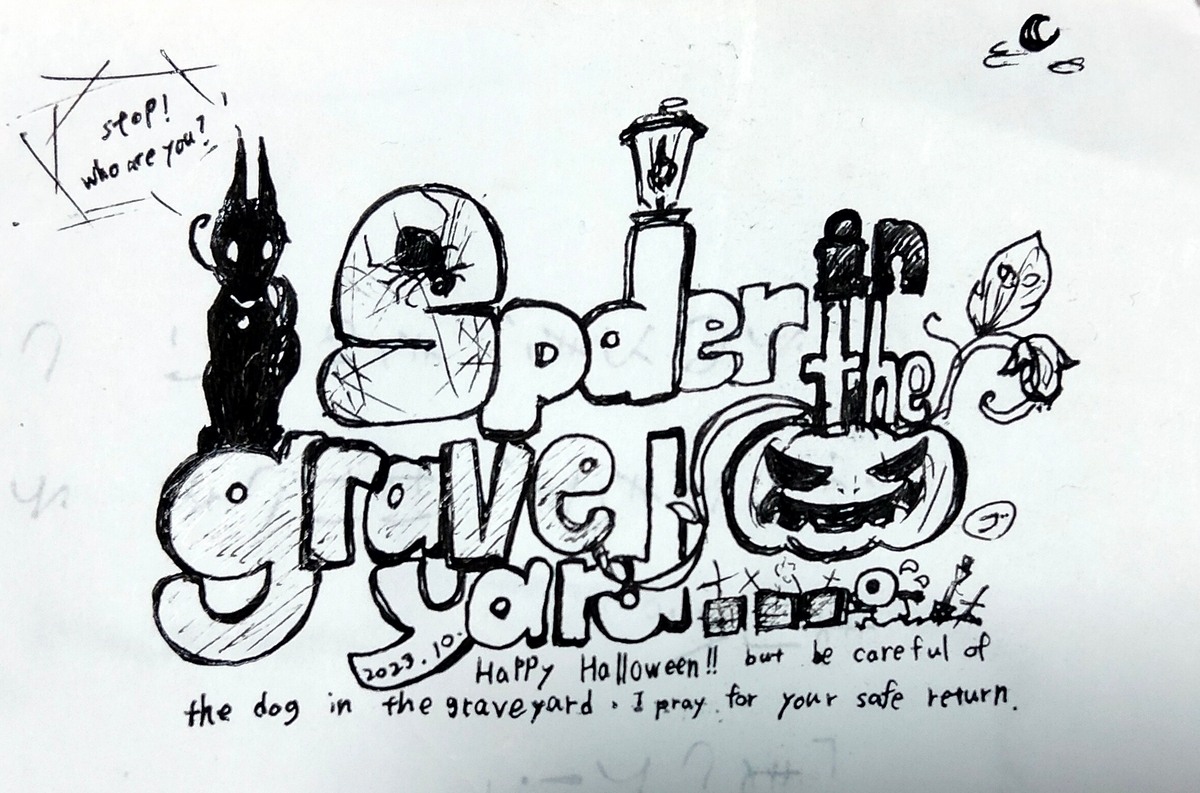 stop!
who are you?
Spder in the
grave
yard
2023.10.
Happy Halloween!! but be careful of
the dog in the graveyard. I pray for your safe return.